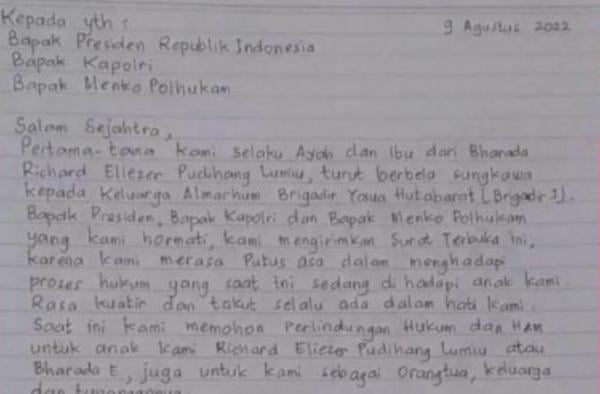 Kepada yth :
9 Agustus 2022
Bapak Presiden Republik Indonesia
Bapak Kapolri
Bapak Menko Polhukam
Salam Sejahtra,
Pertama-tama kami selaku Ayah dan Ibu dari Bharada
Richard Eliezer Pudihang Lumiu, turut berbela sungkawa
kepada Keluarga Almarhum Brigadir Yosua Hutabarat (Brigadir J).
Bapak Presiden, Bapak Kapolri dan Bapak Menko Polhukam
yang kami hormati, kami mengirimkan Surat Terbuka ini,
karena kami merasa Putus asa dalam menghadapi
proses hukum yang saat ini sedang di hadapi anak kami.
Rasa kuatir dan takut selalu ada dalam hati kami.
Saat ini kami memohon Perlindungan Hukum dan HAM
untuk anak kami Richard Eliezer Pudihang Lumiu atau
Bharada E, juga untuk kami sebagai Orangtua, keluarga
dan tunangannya